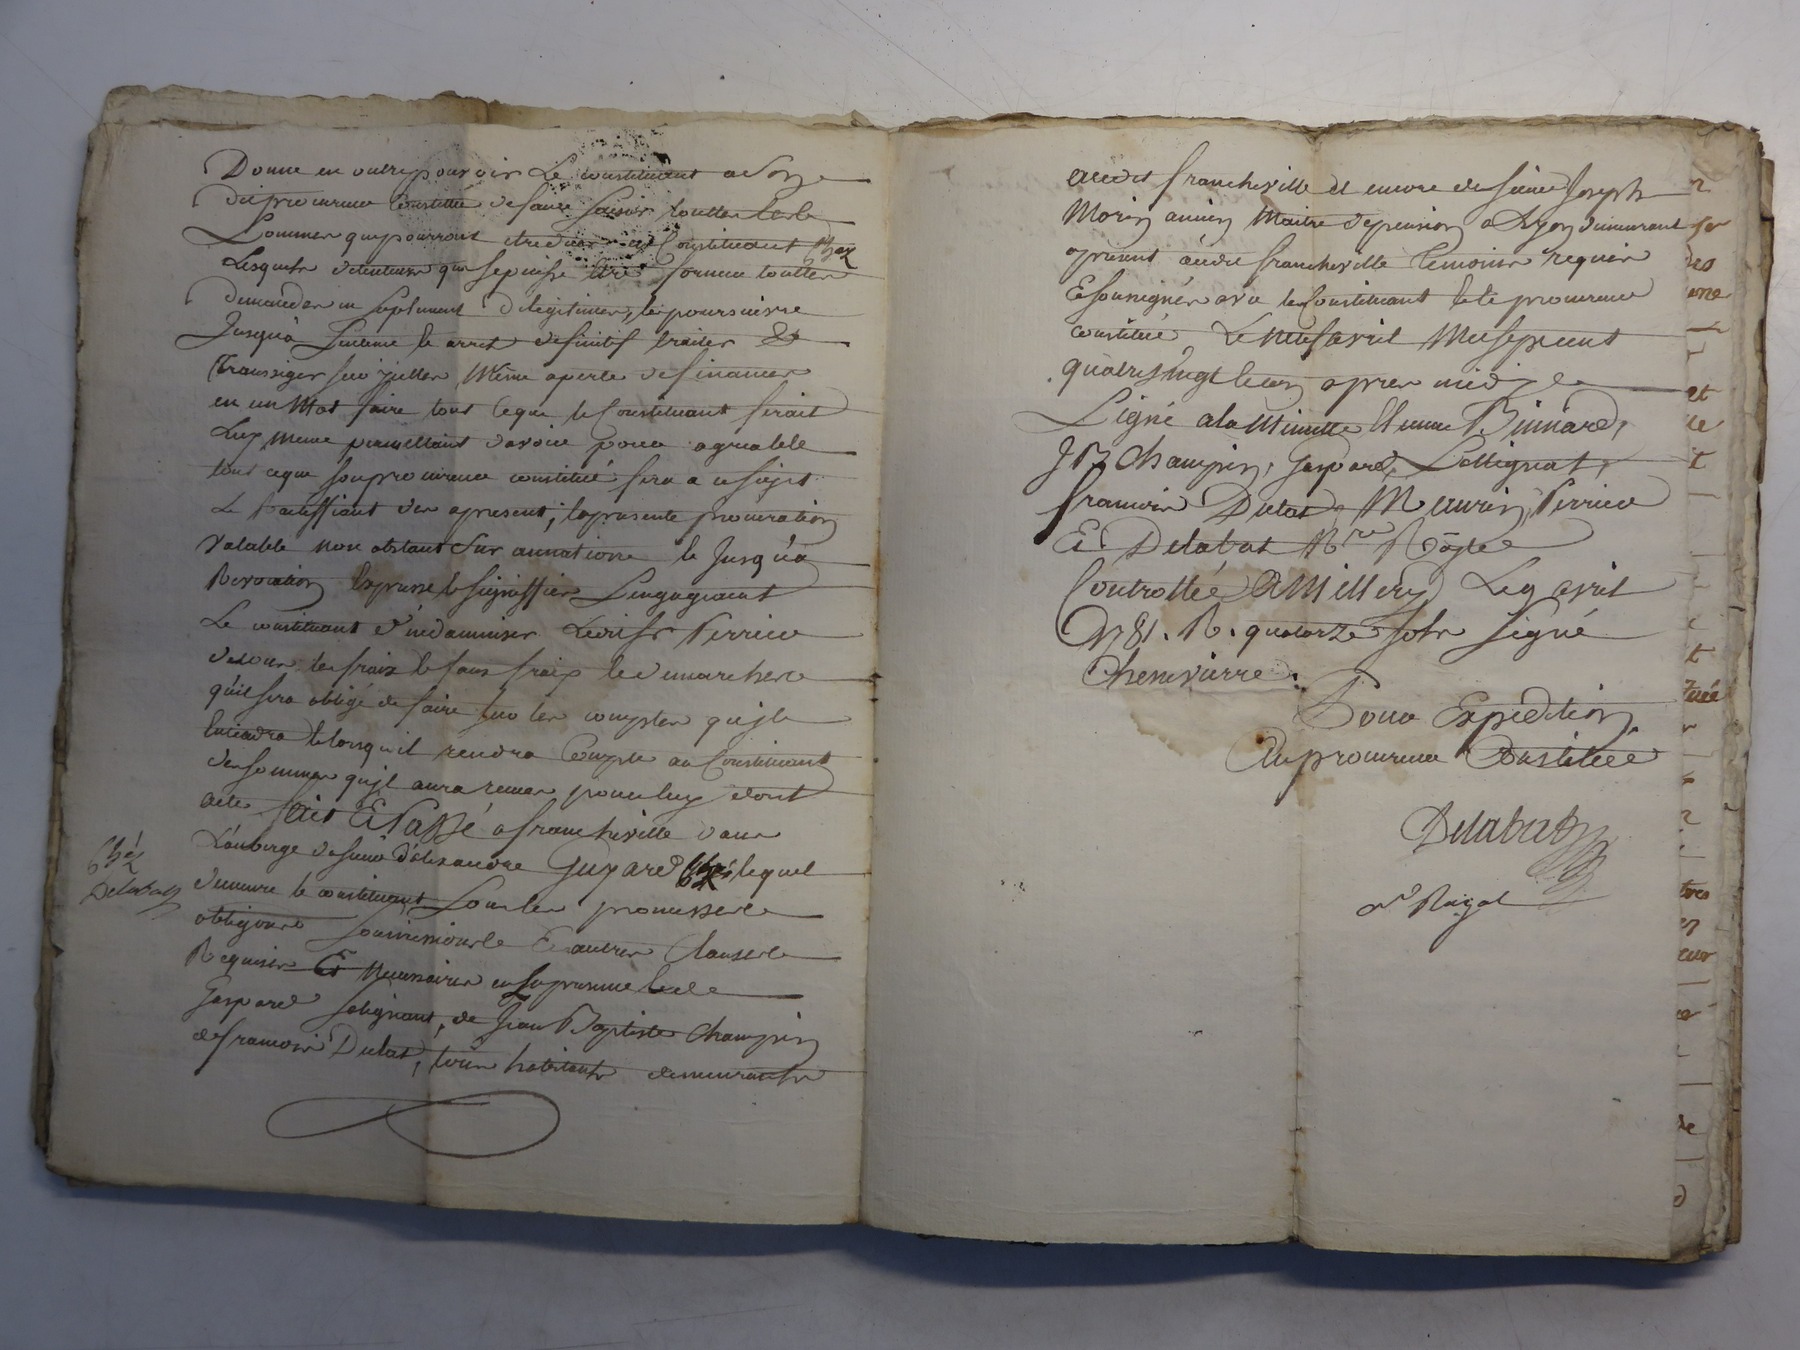 Donne en outre pouvoir Le constituant a son
dit procureur constitué de faire saisir toutes les
sommes qui pourront être dues au Constituant chez
Lesquels detenteurs que se puisse être former touttes
demandes en suplement de legitimes, les poursuivre
Jusqu'a sentence et arret definitif traiter &
Transiger sur ycelles Même a perte de finances
en un Mot faire tout ce que le Constituant ferait
Luy Meme promettant d'avoir pour agreable
tout ce que son procureur constitué fera a ce sujet
Le Ratiffiant des apresent; la presente procuration
Valable non obstant sur annation et Jusqu'a
Revocation Expresse et signiffiée s'engageant
Le constituant d'indamniser Ledit Sr Perrier
de tous les fraix et faux fraix et demarches
qu'il sera obligé de faire sur les comptes qu'il
tiendra et lorsqu'il rendra Compte au Constituant
des sommes qu'il aura remis pour luy dont
acte fait Et Passé a francheville dans
L'auberge de sieur Alexandre Guyard chez lequel
demeure le constituant sous les promesses
obligations soumissions Et autres Clauses
Requises Et Necessaires en la presence de
Gaspard Solignat, de Jean Baptiste Champin
de francois Dulat, tous habitants demeurants
chez
Delabat
audit francheville et encore de sieur Joseph
Morin ancien Maitre de pension a Lyon demeurant
apresent audit francheville temoins requis
Et soussignés avec le Constituant et le procureur
constitué Le neuf avril Mil sept cent
quatre Vingt et un apres midy
Signé a la Minutte Etienne Binnard,
J B Champin, Gaspard Sollignat,
francois Dulat, Maurin, Perrier
Et Delabat Nre Royal
Controllée A Millery Le 9 avril
1781. R. quatorze sols signé
Chenevierre.
Pour Expedition
Au procureur Constitué
Delabat
Nre Royal